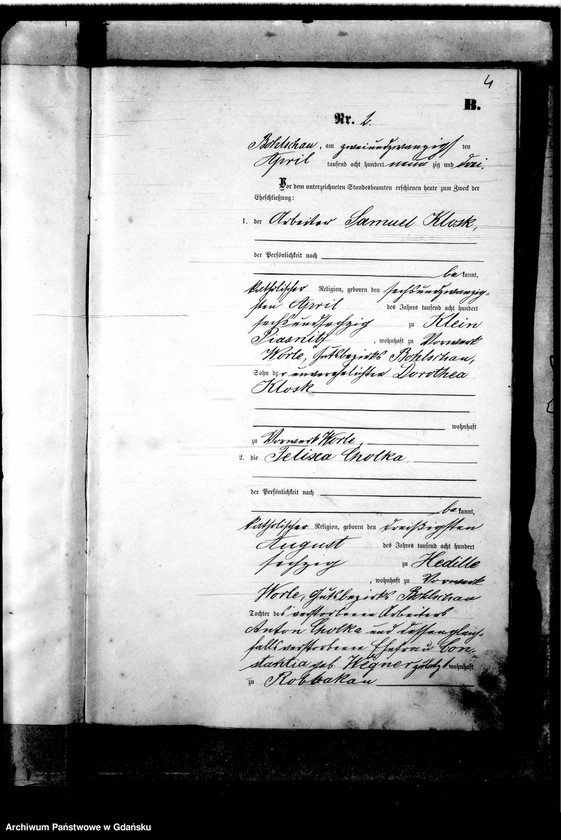 4
B.
Nr. 2.
Bohlschau, am zweiundzwanzigsten
April tausend acht hundert neunzig und drei.
Vor dem unterzeichneten Standesbeamten erschienen heute zum Zweck der
Eheschließung:
1. der Arbeiter Samuel Klosk,
der Persönlichkeit nach
bekannt,
katholischer Religion, geboren den sechsundzwanzig-
sten April des Jahres tausend acht hundert
sechsundsechzig zu Klein
Piasnitz, wohnhaft zu Vorwerk
Worle, Gutsbezirks Bohlschau,
Sohn der unverehelichten Dorothea
Klosk
wohnhaft
zu Vorwerk Worle,
2. die Felixa Cholka
der Persönlichkeit nach
bekannt,
katholischer Religion, geboren den dreißigsten
August des Jahres tausend acht hundert
sechzig zu Hedille
, wohnhaft zu Vorwerk
Worle, Gutsbezirks Bohlschau
Tochter des verstorbenen Arbeiters
Anton Cholka und dessen gleich-
falls verstorbene Ehefrau Con-
stantia geb Wegner zuletzt wohnhaft
zu Robbakau
Archiwum Państwowe w Gdańsku